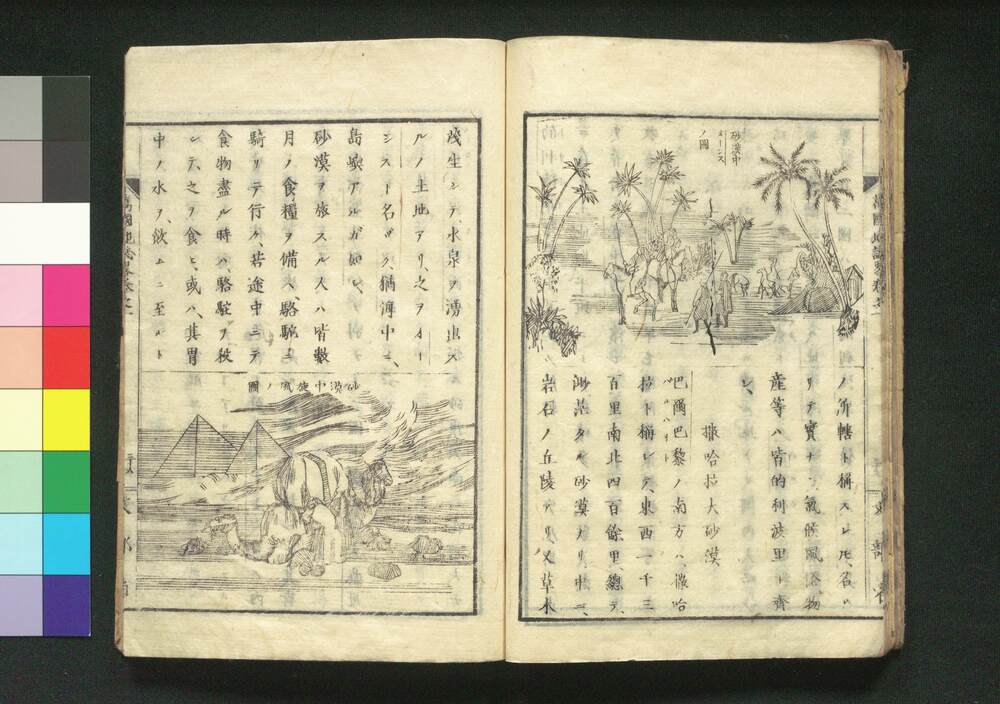 砂漠中
オーシス
ノ圖
ノ所轄ト稱スレ𪜈名ノミ
ニシテ實ナシ氣候風俗物
産等ハ皆的利波里ト齊
シ、
撒哈拉大砂漠
巴爾巴黎ノ南方ハ、撒哈
拉ト稱シテ、東西一千三
百里南北四百餘里、總テ、
渺茫タル砂漠ナリ、中ニ、
岩石ノ丘陵アリ、又草木
茂生シテ、水泉ヲ湧出ス
ルノ土地アリ、之ヲオー
シスト名ヅク、猶海中ニ、
島嶼アルガ如シ、
砂漠ヲ旅スル人ハ皆數
月ノ食糧ヲ備ヘ、駱駝ニ
騎リテ行ク、若途中ニテ
食物盡ル時ハ、駱駝ヲ殺
シテ、之ヲ食ヒ、或ハ、其胃
中ノ水ヲ、飲ムニ至ルト
砂漠中旋風ノ圖